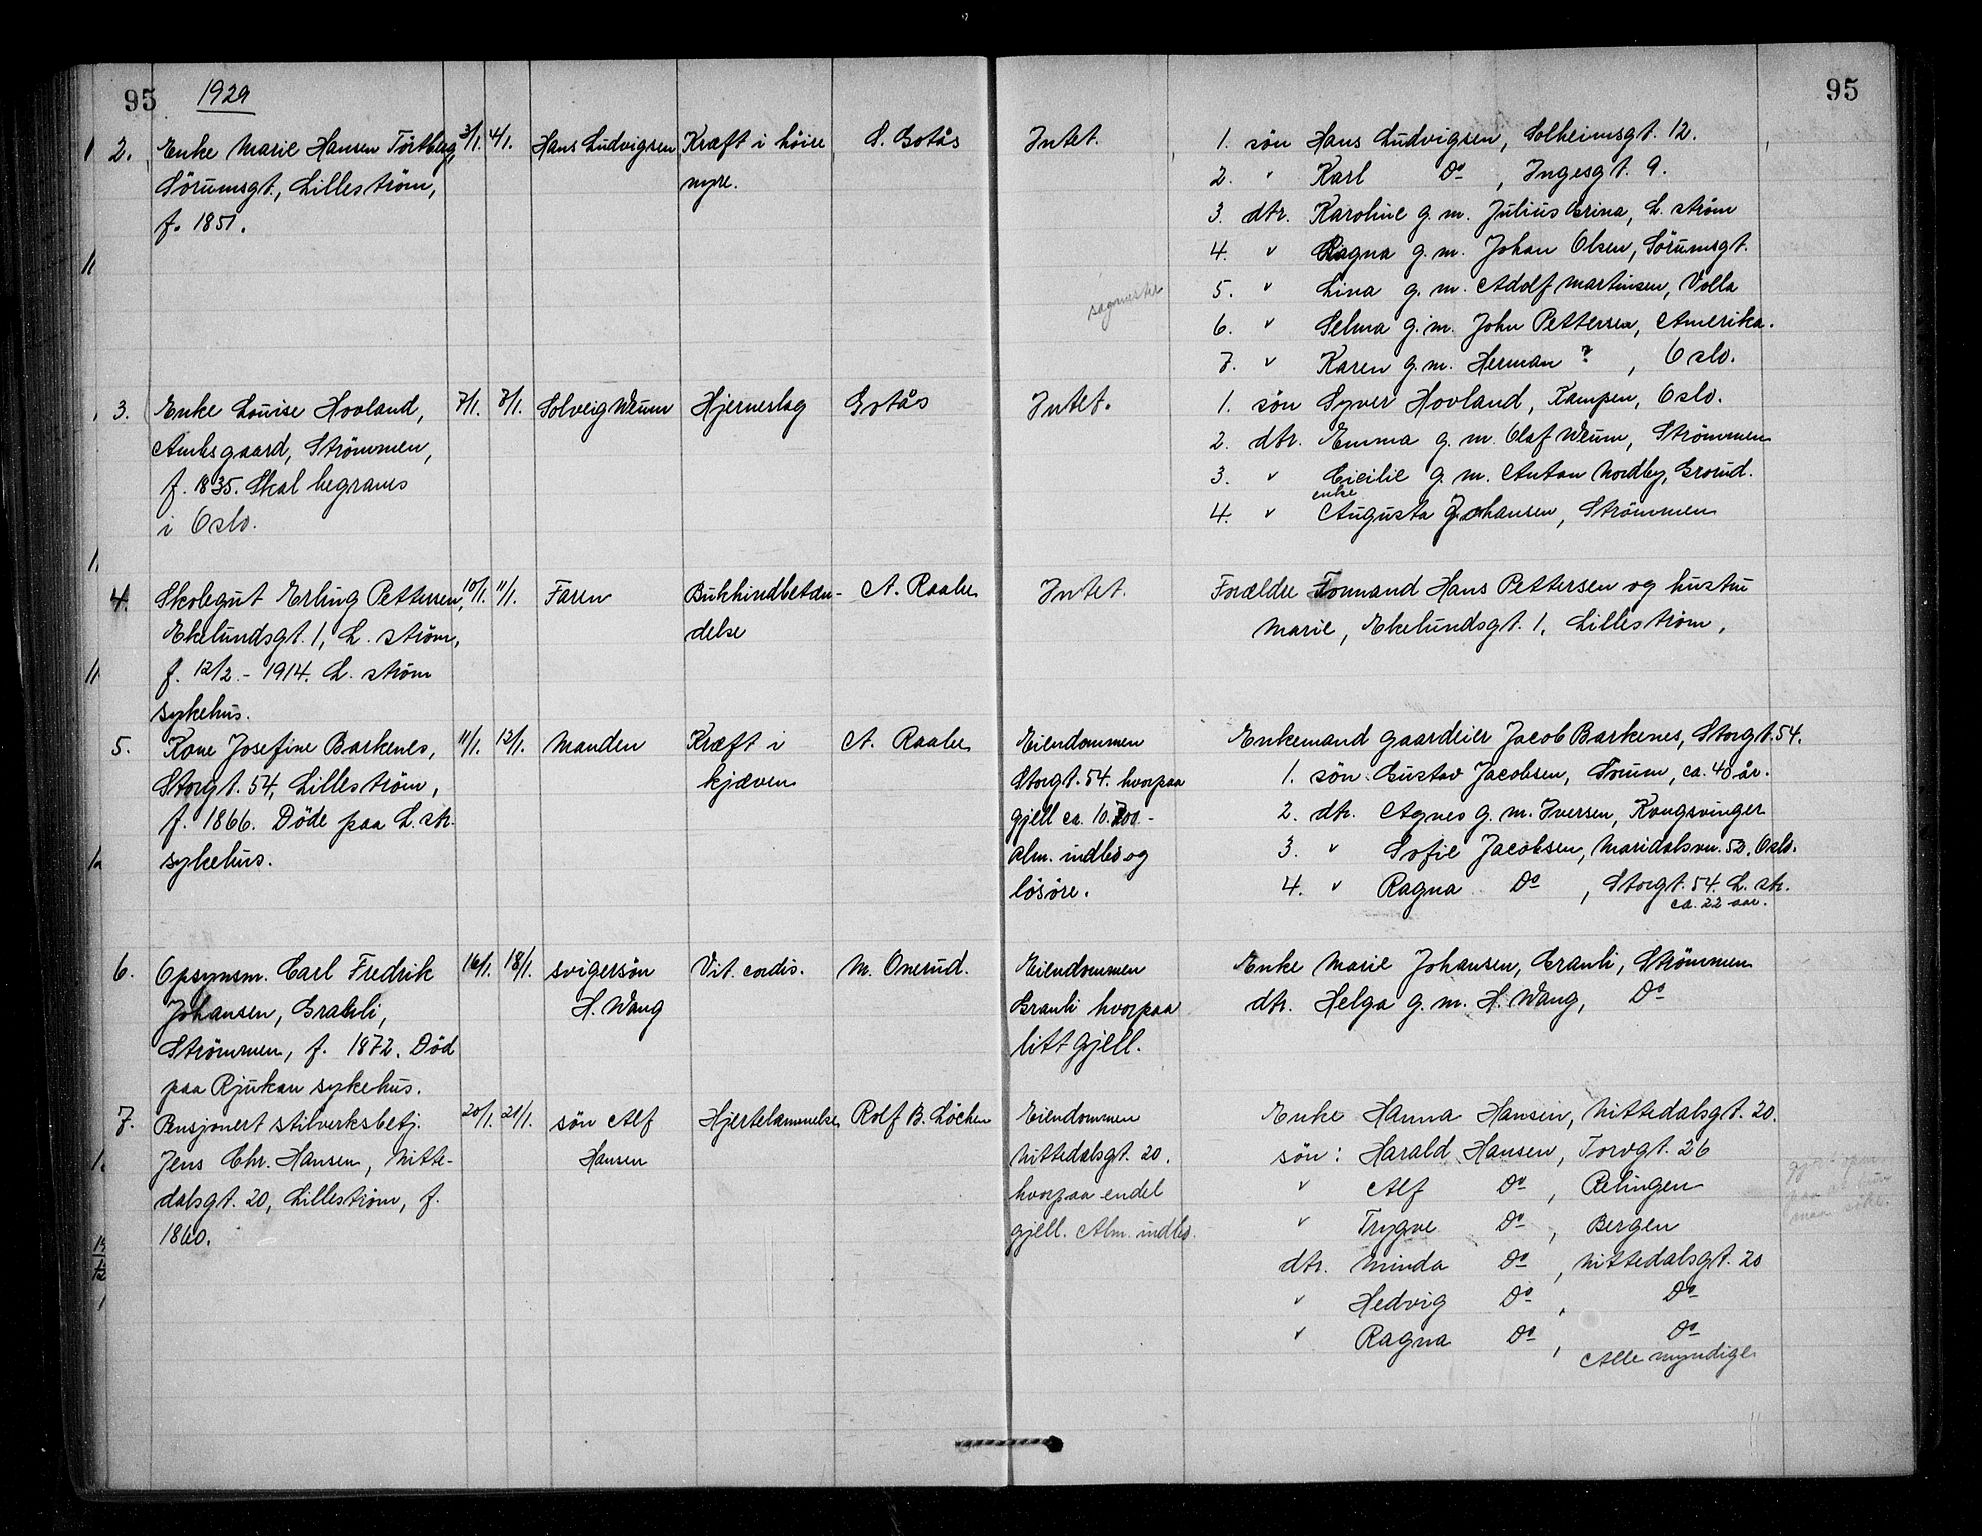 95 1929 95
2. Enke Marie Hansen Törtberg, 3/1. 4/1. Hans Ludvigsen Kræft i höire S. Gotås Intet. 1. sön Hans Ludvigsen, Solheimsgt. 12.
Sörumsgt, Lilleström, nyre. 2. " Karl Do , Ingesgt. 9.
f. 1851. 3. dtr. Karoline g. m. Julius Grina, L. ström
4. " Ragna g. m. Johan Olsen, Sörumsgt.
sagmester 5. " Lina g. m. Adolf Martinsen, Volla
6. " Selma g. m. John Pettersen, Amerika.
7. " Karen g. m. Herman ? , Oslo.
3. Enke Louise Hovland, 7/1. 8/1. Solveig Wrum Hjerneslag Gotås Intet. 1. sön Syver Hovland, Kampen, Oslo.
Amlisgaard, Strömmen, 2. dtr. Emma g. m. Olaf Wrum, Strömmen
f. 1835. Skal begraves 3. " Cicilie g. m. Anton Nordby, Grorud.
enke
i Oslo. 4. " Augusta Johansen, Strömmen
4. Skolegut Erling Pettersen, 10/1. 11/1. Faren Bukhindbetæn- A. Raabe Intet. Forældre Formand Hans Pettersen og hustru
Ekelundsgt. 1, L. ström, delse Marie, Ekelundsgt. 1, Lilleström,
f. 12/2. - 1914. L. ström
sykehus.
5. Kone Josefine Barkenes, 11/1. 12/1. Manden Kræft i A. Raabe Eiendommen Enkemand gaardeier Jacob Barkenes, Storgt. 54.
Storgt. 54, Lilleström, kjæven Storgt. 54. hvorpaa 1. sön Gustav Jacobsen, Sörum, ca. 40 år.
f. 1866. Döde paa L. str. gjell ca. 10.700.- 2. dtr. Agnes g. m. Iversen, Kongsvinger
sykehus. Alm. indbo og 3. " Sofie Jacobsen, Maridalsvn. 53, Oslo.
lösöre. 4. " Ragna Do , Storgt. 54. L. str.
ca. 22 aar.
6. Opsynsm. Carl Fredrik 16/1. 18/1. svigersön Vit. cordis. M. Onerud. Eiendommen Enke Marie Johansen, Granli, Strömmen
Johansen, Granli, H. Wang Granli hvorpaa dtr. Helga g. m. H. Wang, Do
Strömmen, f. 1872. Död litt gjell.
paa Rjukan sykehus.
7. Pensjonert stilverksbetj. 20/1. 21/1. sön Alf Hjertelammelse Rolf B. Löchen Eiendommen Enke Hanna Hansen, Nittedalsgt. 20.
Jens Chr. Hansen, Nitte- Hansen Nittedalsgt. 20. sön: Harald Hansen, Torvgt. 26
dalsgt. 20, Lilleström, f. hvorpaa endel " Alf Do , Relingen
1860. gjell. Alm. indbo. " Trygve Do , Bergen
dtr. Minda Do , Nittedalsgt. 20
" Hedvig Do , Do
" Ragna Do , Do
Alle myndige